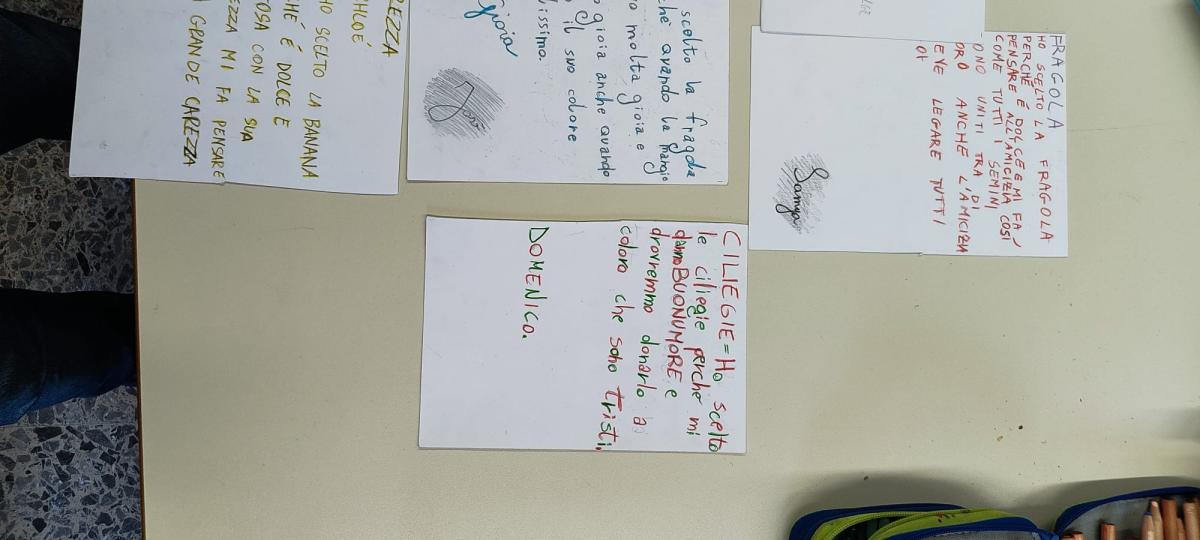 REZZA
CHLOÉ
HO SCELTO LA BANANA
CHÉ É DOLCE E
TOSA CON LA SUA
EZZA MI FA PENSARE
GRANDE CAREZZA
scelto la fragola
ché quando la mangio
o molta gioia e
gioia anche quando
il suo colore
lissimo.
gioia
FRAGOLA
HO SCELTO LA FRAGOLA
PERCHÉ É DOLCE E MI FA
PENSARE ALL'AMICIZIA COSÌ
COME TUTTI I SEMINI
ONO UNITI TRA DI
ORO ANCHE L'AMICIZIA
EVE LEGARE TUTTI
Samya
CILIEGIE = Ho scelto
le ciliegie perche mi
danno BUONUMORE e
drovremmo donarlo a
coloro che sono tristi.
DOMENICO.